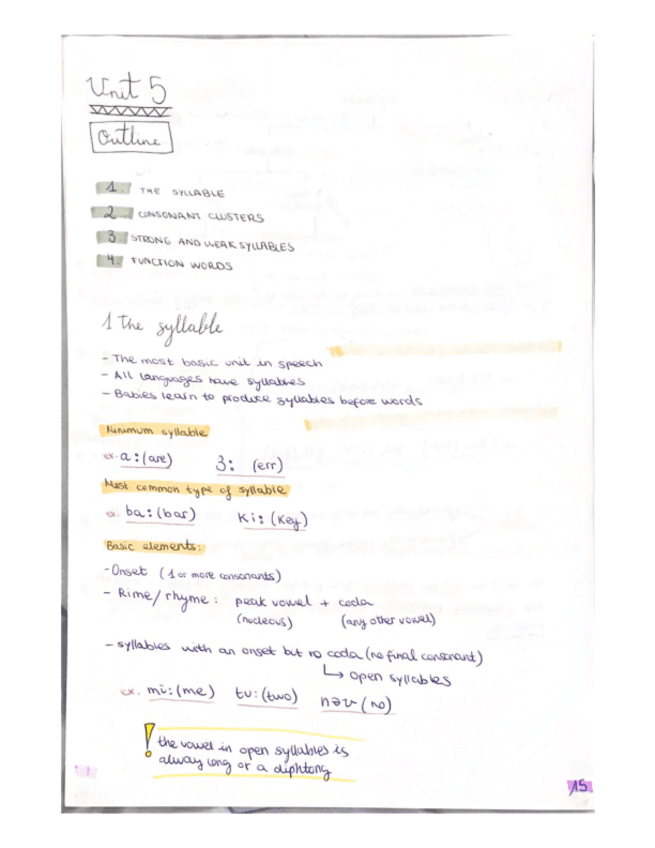 Unit 5
Outline
1. THE SYLLABLE
2 CONSONANT CLUSTERS
3 STRONG AND WEAK SYLLABLES
4. FUNCTION WORDS
1 the syllable
- The most basic unit in speech
- All languages have syllables
- Babies learn to produce syllables before words
Minimum syllable
ex. a: (are) 3: (err)
Most common type of syllable
ba: (bar) Ki: (Key)
Basic elements:
- Onset (1 or more consonants)
- Rime/rhyme: peak vowel + coda
(nucleous) (any other vowel)
- syllables with an onset but no coda (no final consonant)
↳ open syllables
ex. mi: (me) tu: (two) nəʊ (no)
! the vowel in open syllables is
alway long or a diphtong
15